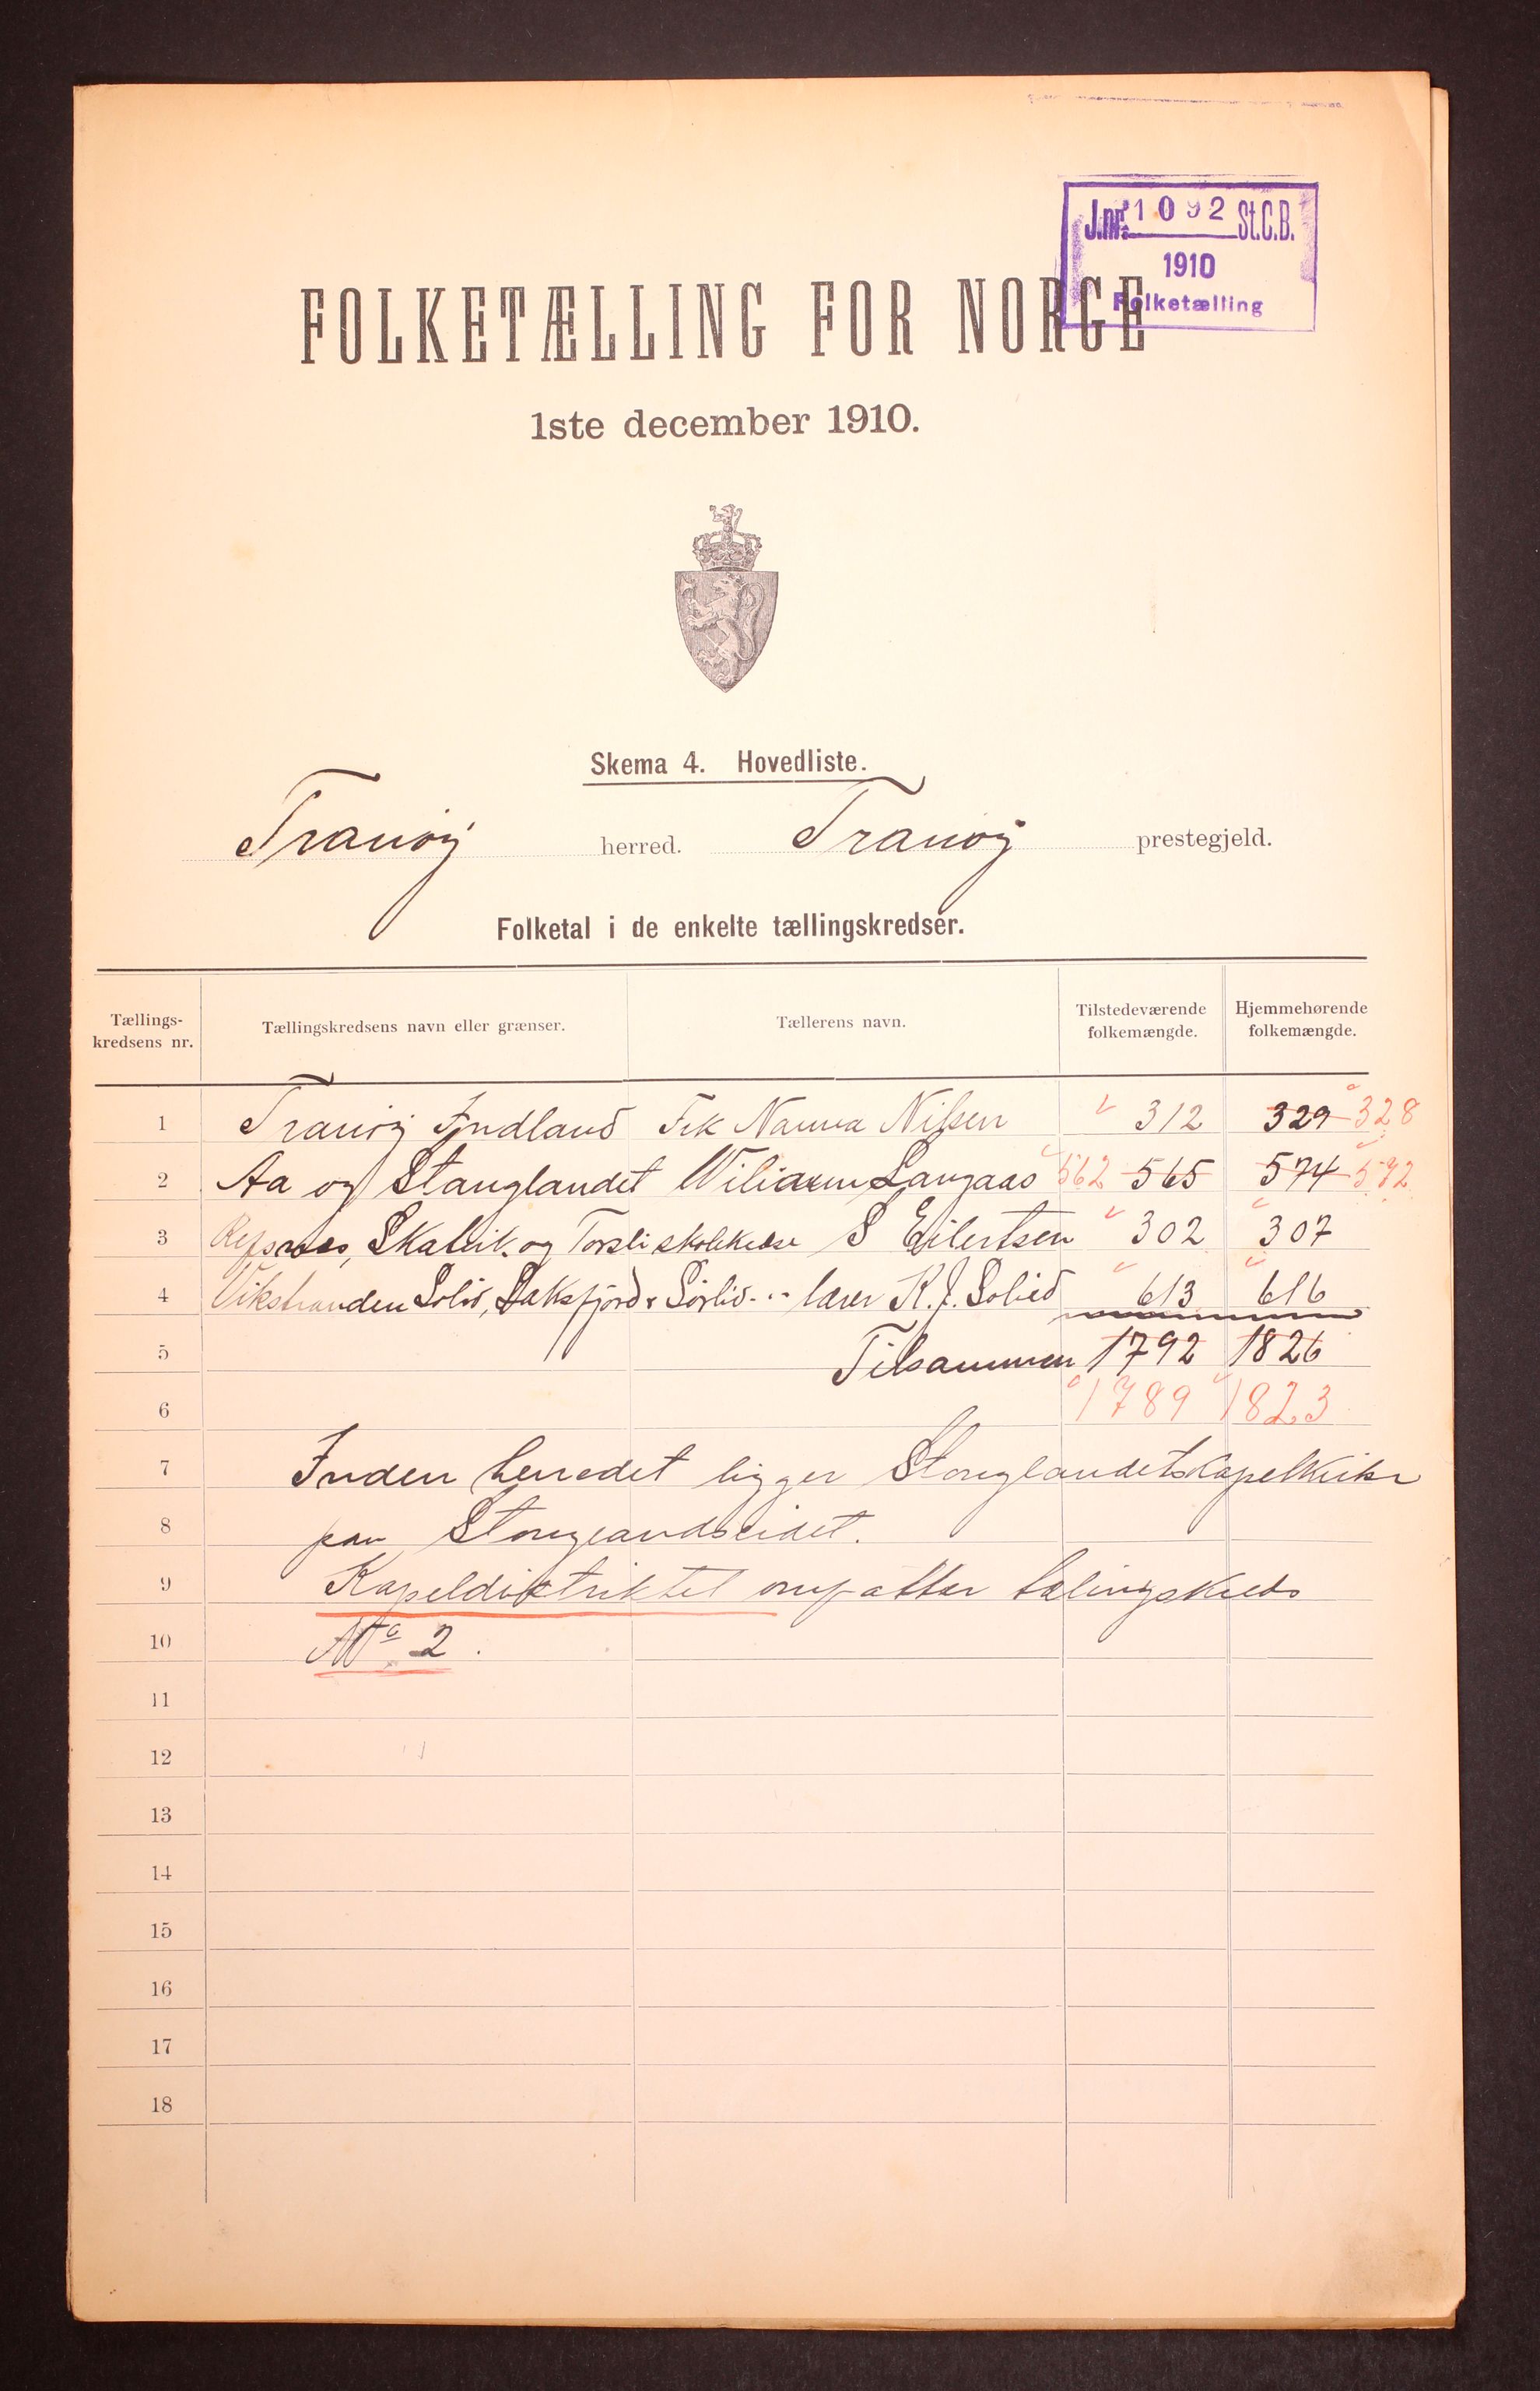 J.nr. 1092 St.C.B.
1910
Folketælling
FOLKETÆLLING FOR NORGE
1ste december 1910.
Skema 4. Hovedliste.
Tranöy herred. Tranöy prestegjeld.
Folketal i de enkelte tællingskredser.
Tællings-kredsens nr. Tællingskredsens navn eller grænser. Tællerens navn. Tilstedeværende folkemængde. Hjemmehørende folkemængde.
1 Tranöy Indland Frk Nanna Nilsen 312 329 328
2 Aa og Stanglandet Wiliam Langaas 562 565 574 572
3 Refsnes, Skatvik og Torsli skolekredse S Eilertsen 302 307
4 Vikstranden Solid, Laksfjord & Sörlid lærer K. J. Solied 613 616
5 Tilsammen 1792 1826
6 1789 1823
7 Inden herredet ligger Stonglandets Kapelkirke
8 paa Stonglandseidet.
9 Kapeldistriktet omfatter tælingskreds
10 No 2.
11
12
13
14
15
16
17
18